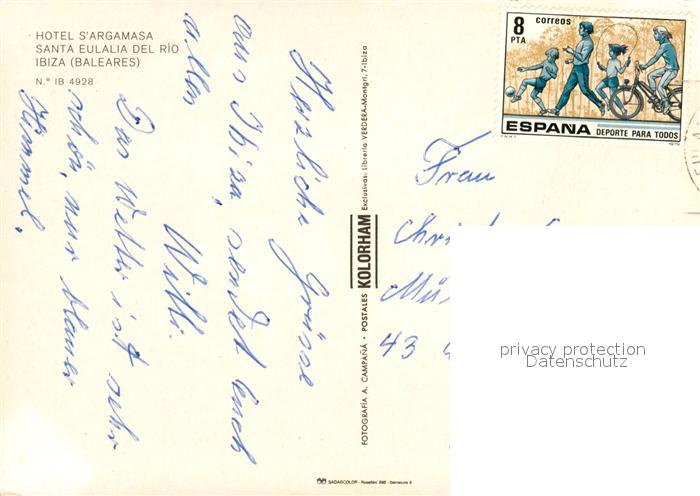 HOTEL S'ARGAMASA
SANTA EULALIA DEL RÍO
IBIZA (BALEARES)
N.º IB 4928
Herzliche Grüsse
aus Ibiza, sendet Euch
allen
Willi.
Das Wetter ist sehr
schön, nur blauer
Himmel.
FOTOGRAFÍA A. CAMPAÑÁ • POSTALES KOLORHAM Exclusivas: Librería VERDERA-Montgrí, 7-Ibiza
8 correos
PTA
ESPAÑA DEPORTE PARA TODOS
1979
Frau
43
privacy protection
Datenschutz